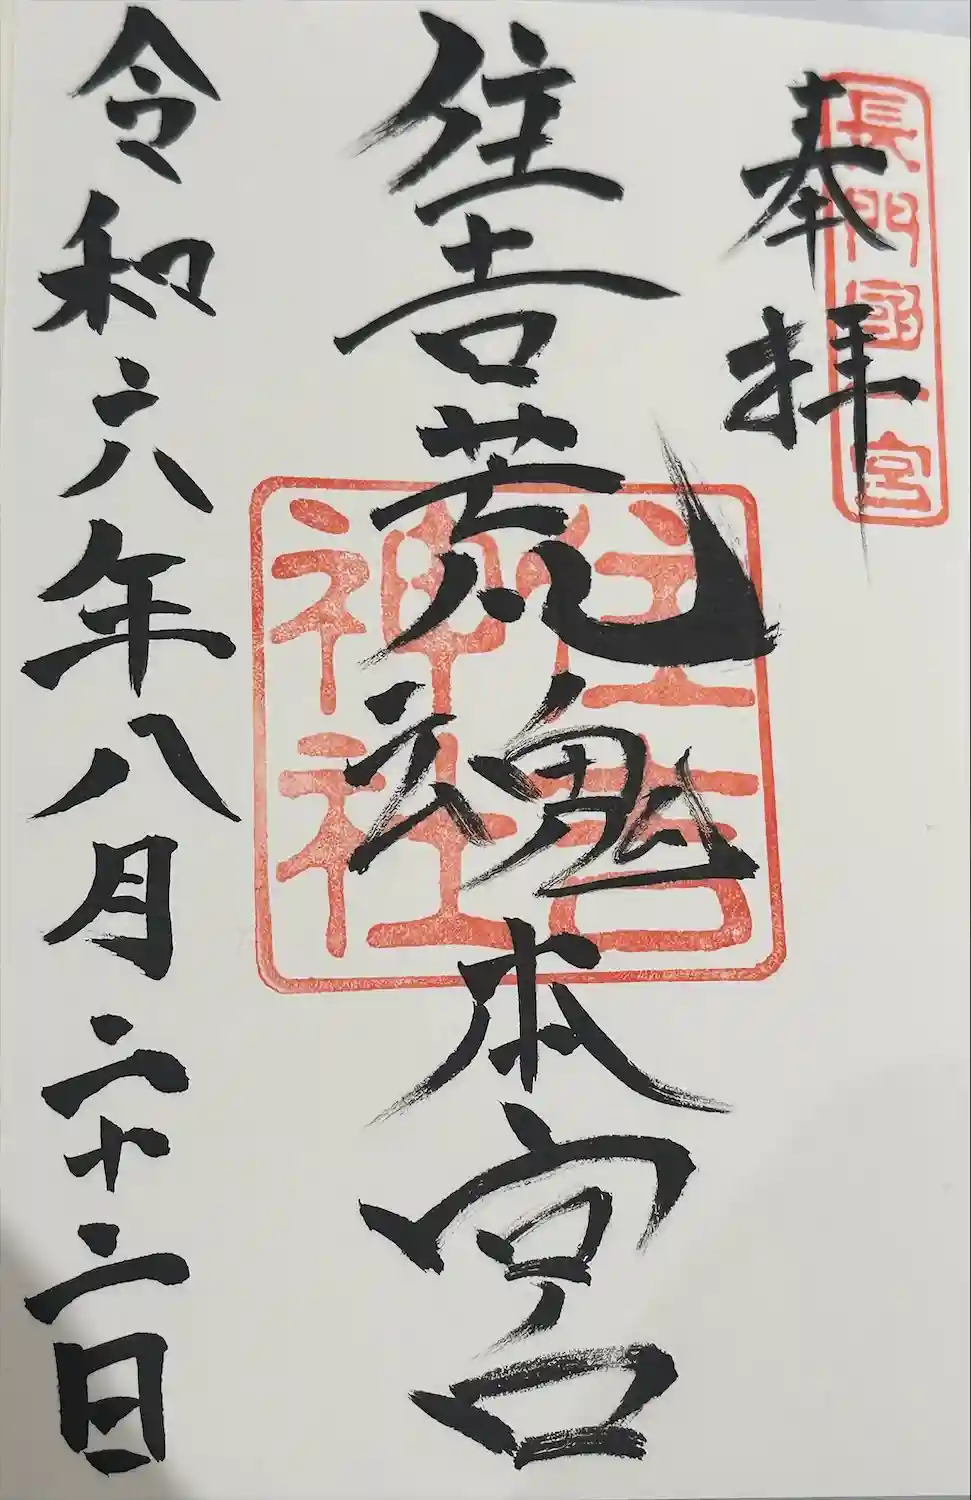 奉拝
長門国一宮
住吉荒魂本宮
住吉
神社
令和六年八月二十二日